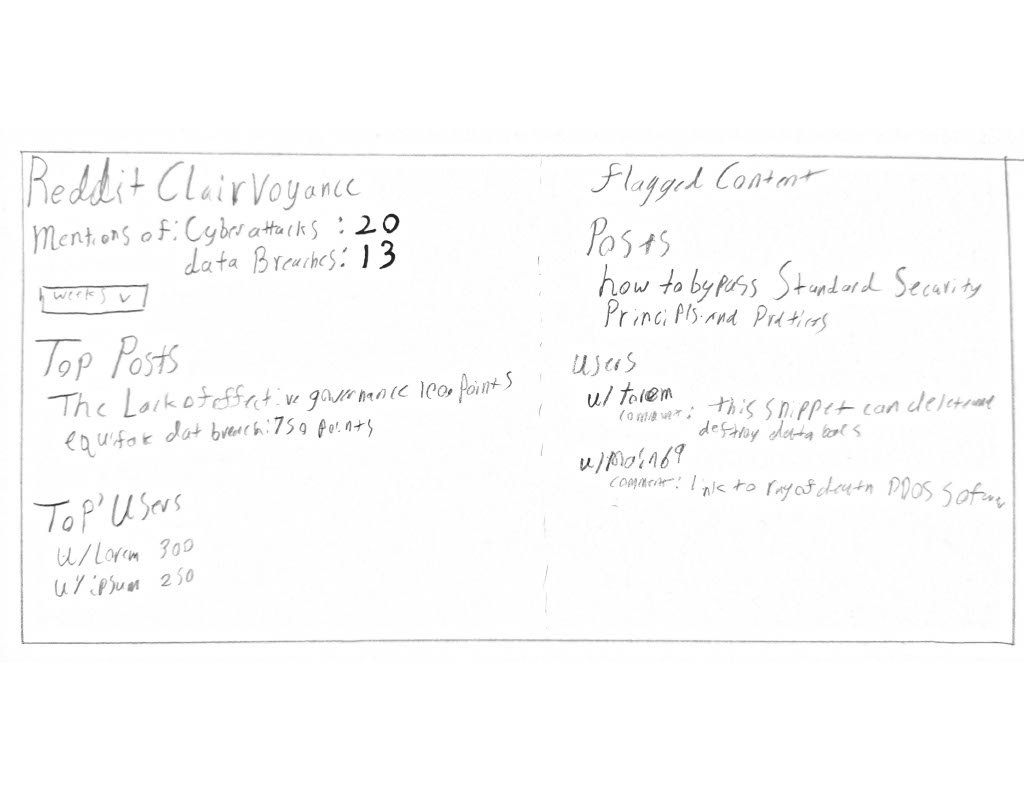 Reddit Clairvoyance
Mentions of: Cyberattacks : 20
data Breaches: 13
weeks
Top Posts
The Lack of effective governance 1000 points
equifax dat breach: 750 points
Top Users
u/Lorem 300
u/ipsum 250
flagged Content
Posts
how to bypass Standard Security
Principls and Prctices
Users
u/
comment: this snippet can
destroy data
u/
comment: link to ray of death DDOS